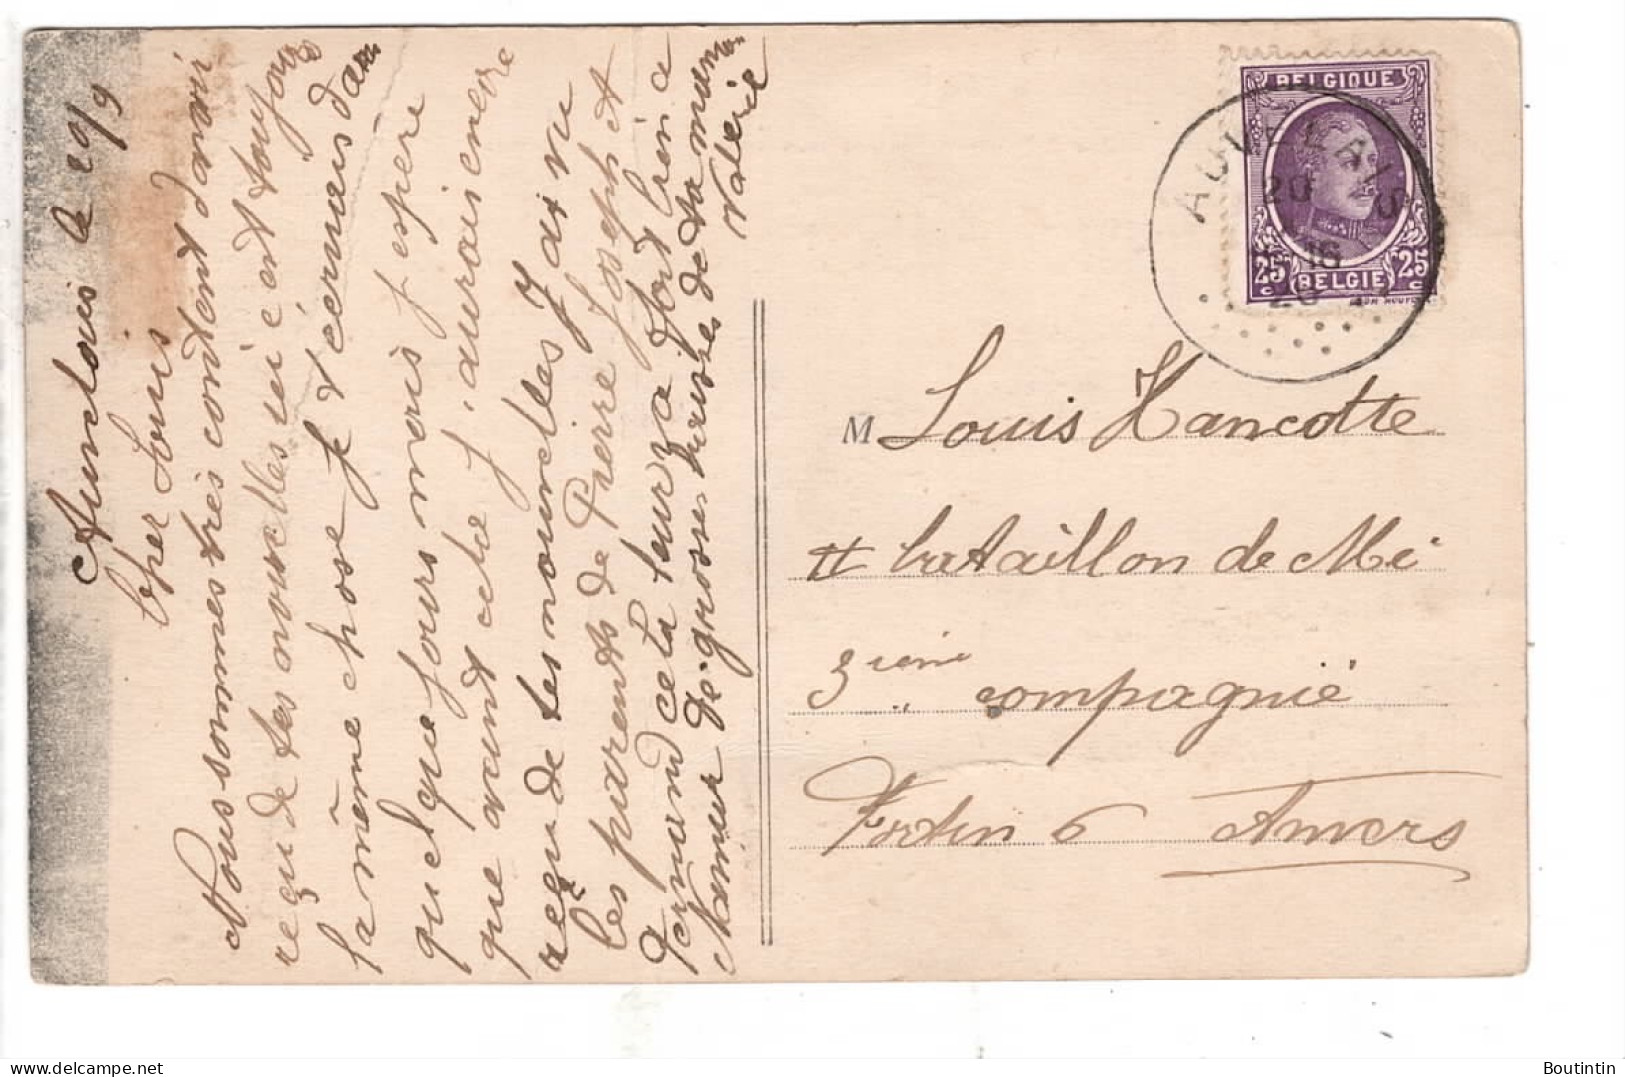 le 29/9
Cher Louis
Nous sommes très contents d'avoir
reçu de tes nouvelles ici c'est toujours
la même chose je t'écrirais dans
quelque jours mais j'espere
que avant cela j'aurais encore
reçu de tes nouvelles J'ai vu
les parents de Pierre Joseph et
Fernand cela leur va fort bien a
Namur De grosses baisses de ta maman
Valerie
BELGIQUE
25 25
BELGIE
AUVELAIS
20
16
M Louis Hancotte
II bataillon de Mi
3ième compagnié
Fortin 6 Anvers
Boutintin